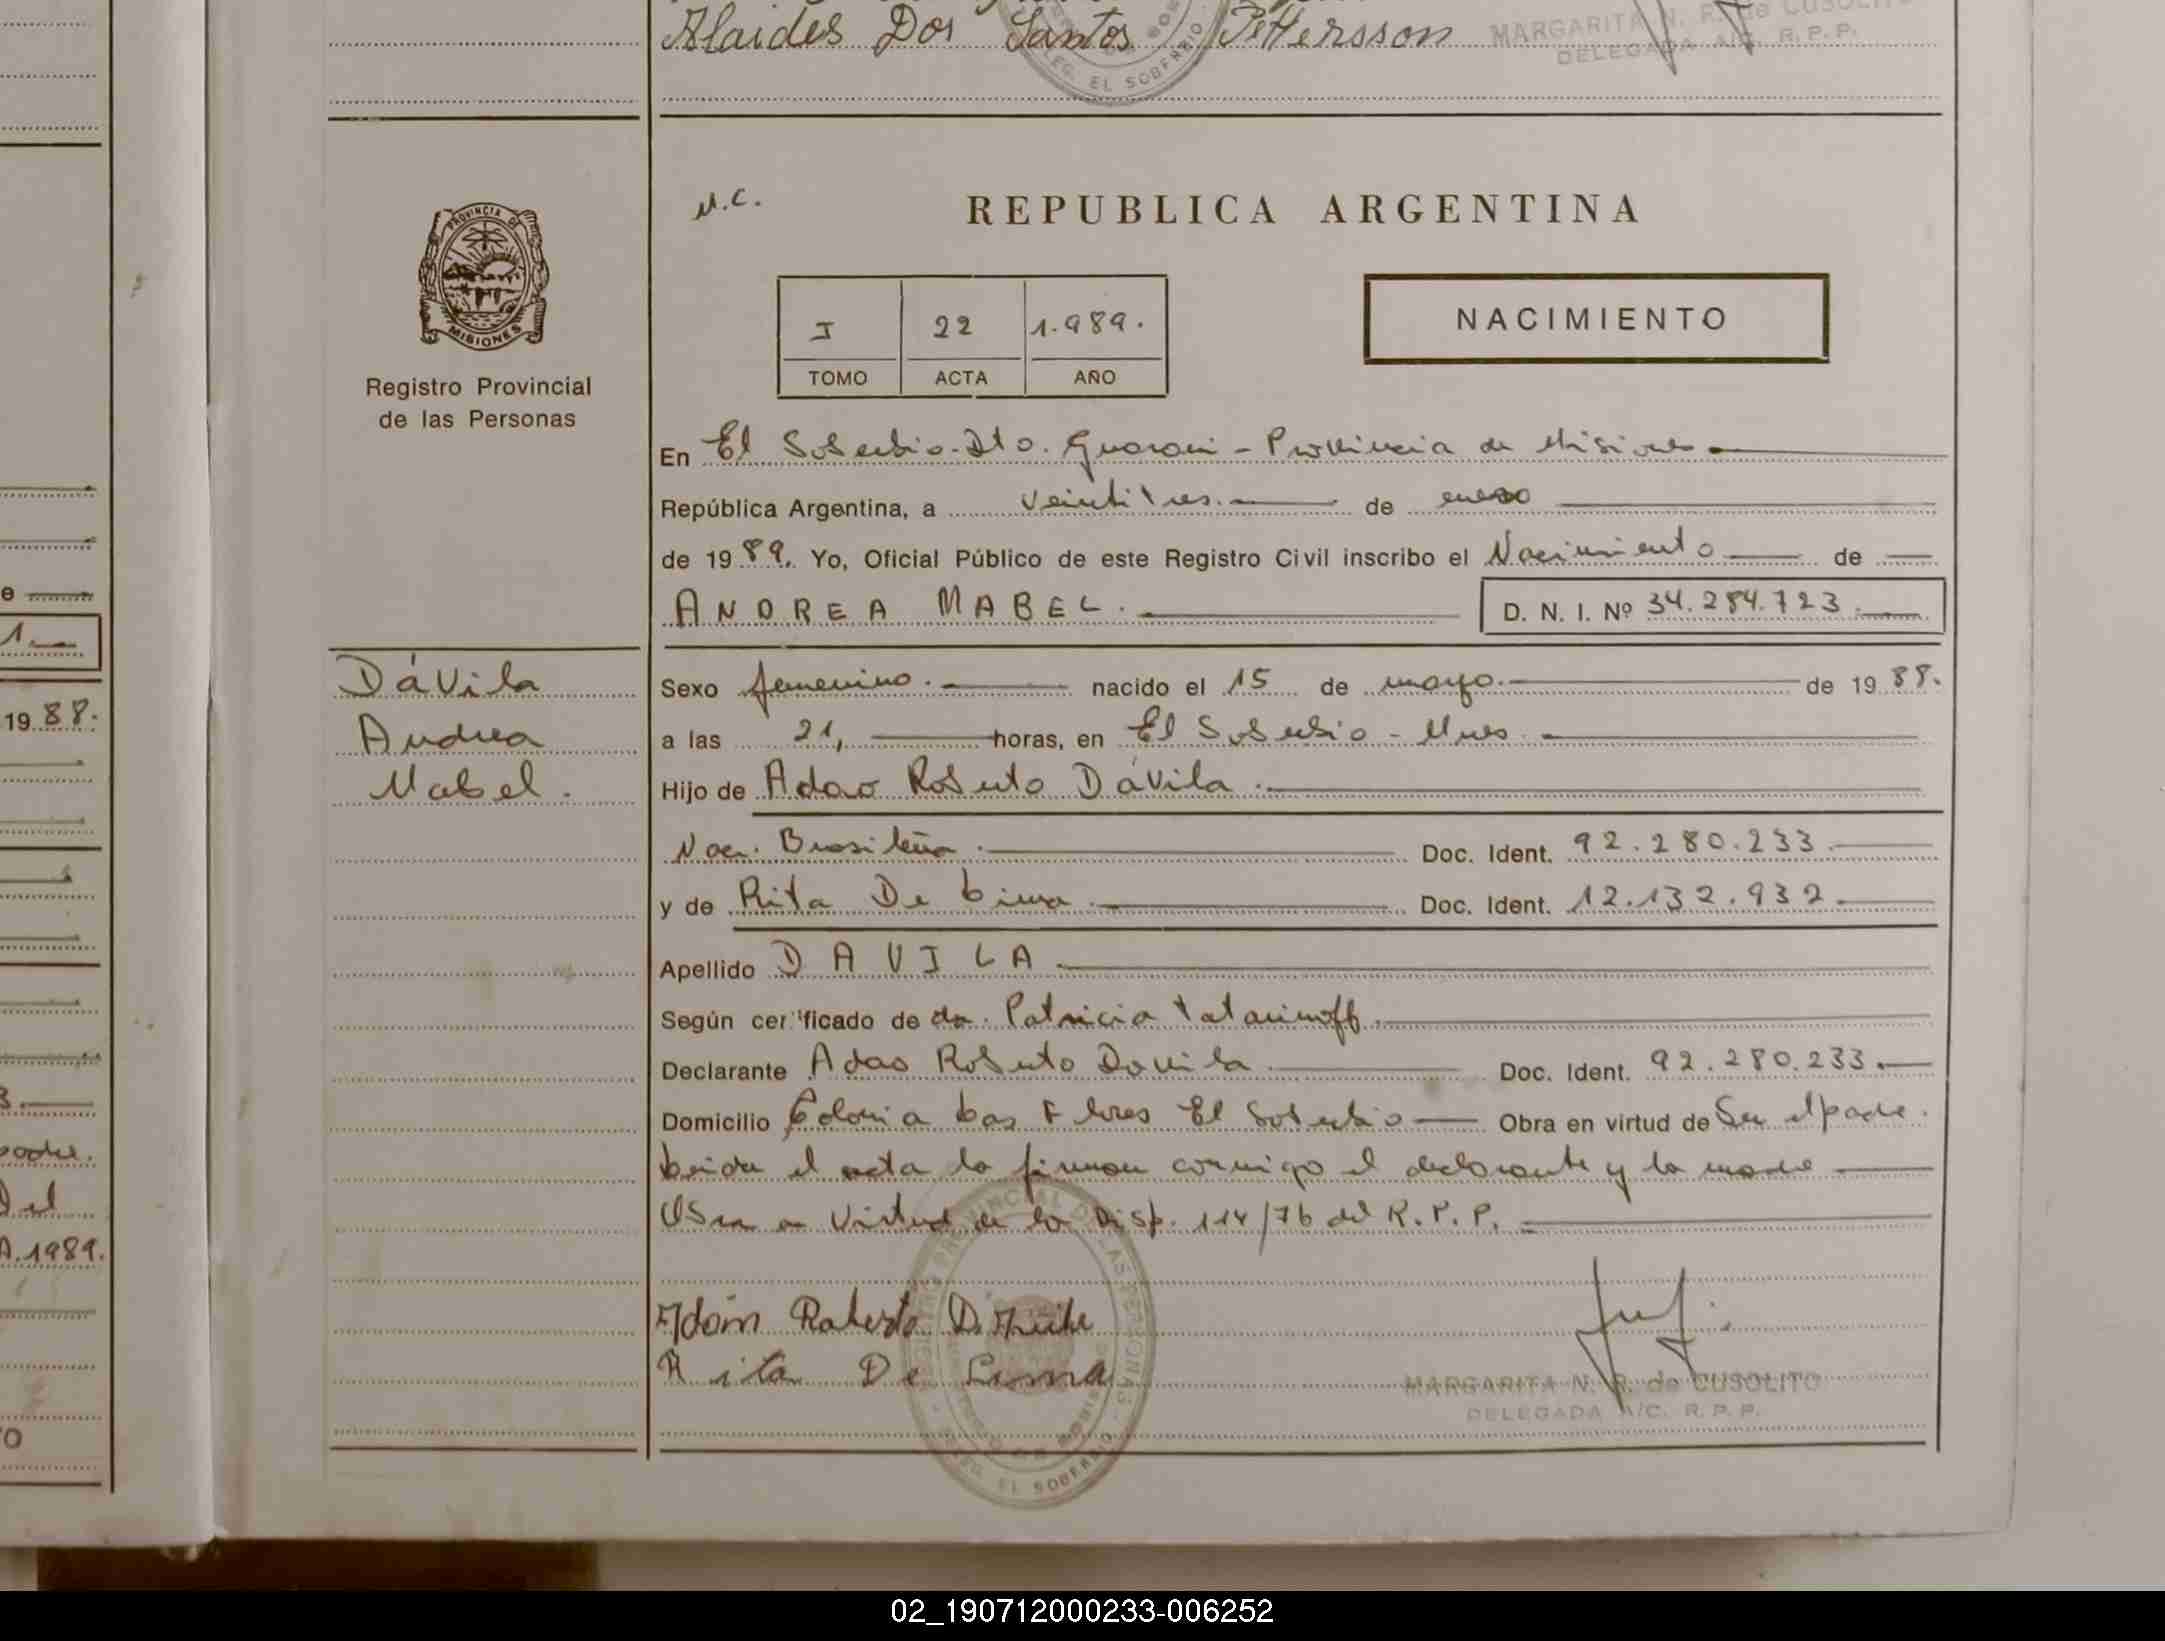 Alaides Dos Santos Pettersson
MARGARITA N. R. de CUSOLITO
DELEGADA A/C. R. P. P.
DELEG. EL SOBERBIO
PROVINCIA DE
MISIONES
Registro Provincial
de las Personas
N.C.
REPUBLICA ARGENTINA
I 22 1.989.
TOMO ACTA AÑO
NACIMIENTO
En El Soberbio-Dto. Guarani - Provincia de Misiones
República Argentina, a veintitres. de enero
de 19 89. Yo, Oficial Público de este Registro Civil inscribo el Nacimiento de
ANDREA MABEL. D. N. I. Nº 34.284.723.
Dávila
Andrea
Mabel.
Sexo femenino. nacido el 15 de mayo. de 19 88.
a las 21, horas, en El Soberbio - Mnes.
Hijo de Adao Roberto Dávila.
Nac. Brasileña. Doc. Ident. 92.280.233.
y de Rita De Lima. Doc. Ident. 12.132.932.
Apellido DAVILA
Según certificado de da. Patricia Tatarinoff.
Declarante Adao Roberto Davila Doc. Ident. 92.280.233.
Domicilio Colonia Las Flores El Soberbio Obra en virtud de Ser el padre.
Leida el acta la firman conmigo el declarante y la madre
Obra en Virtud de la Disp. 114/76 del R. P. P.
Adóm Roberto
Rita De Lima
REGISTRO PROVINCIAL DE LAS PERSONAS
DELEG. EL SOBERBIO
MARGARITA N. R. de CUSOLITO
DELEGADA A/C. R. P. P.
1.
19 88.
padre.
Del
A. 1989.
TO
02_190712000233-006252